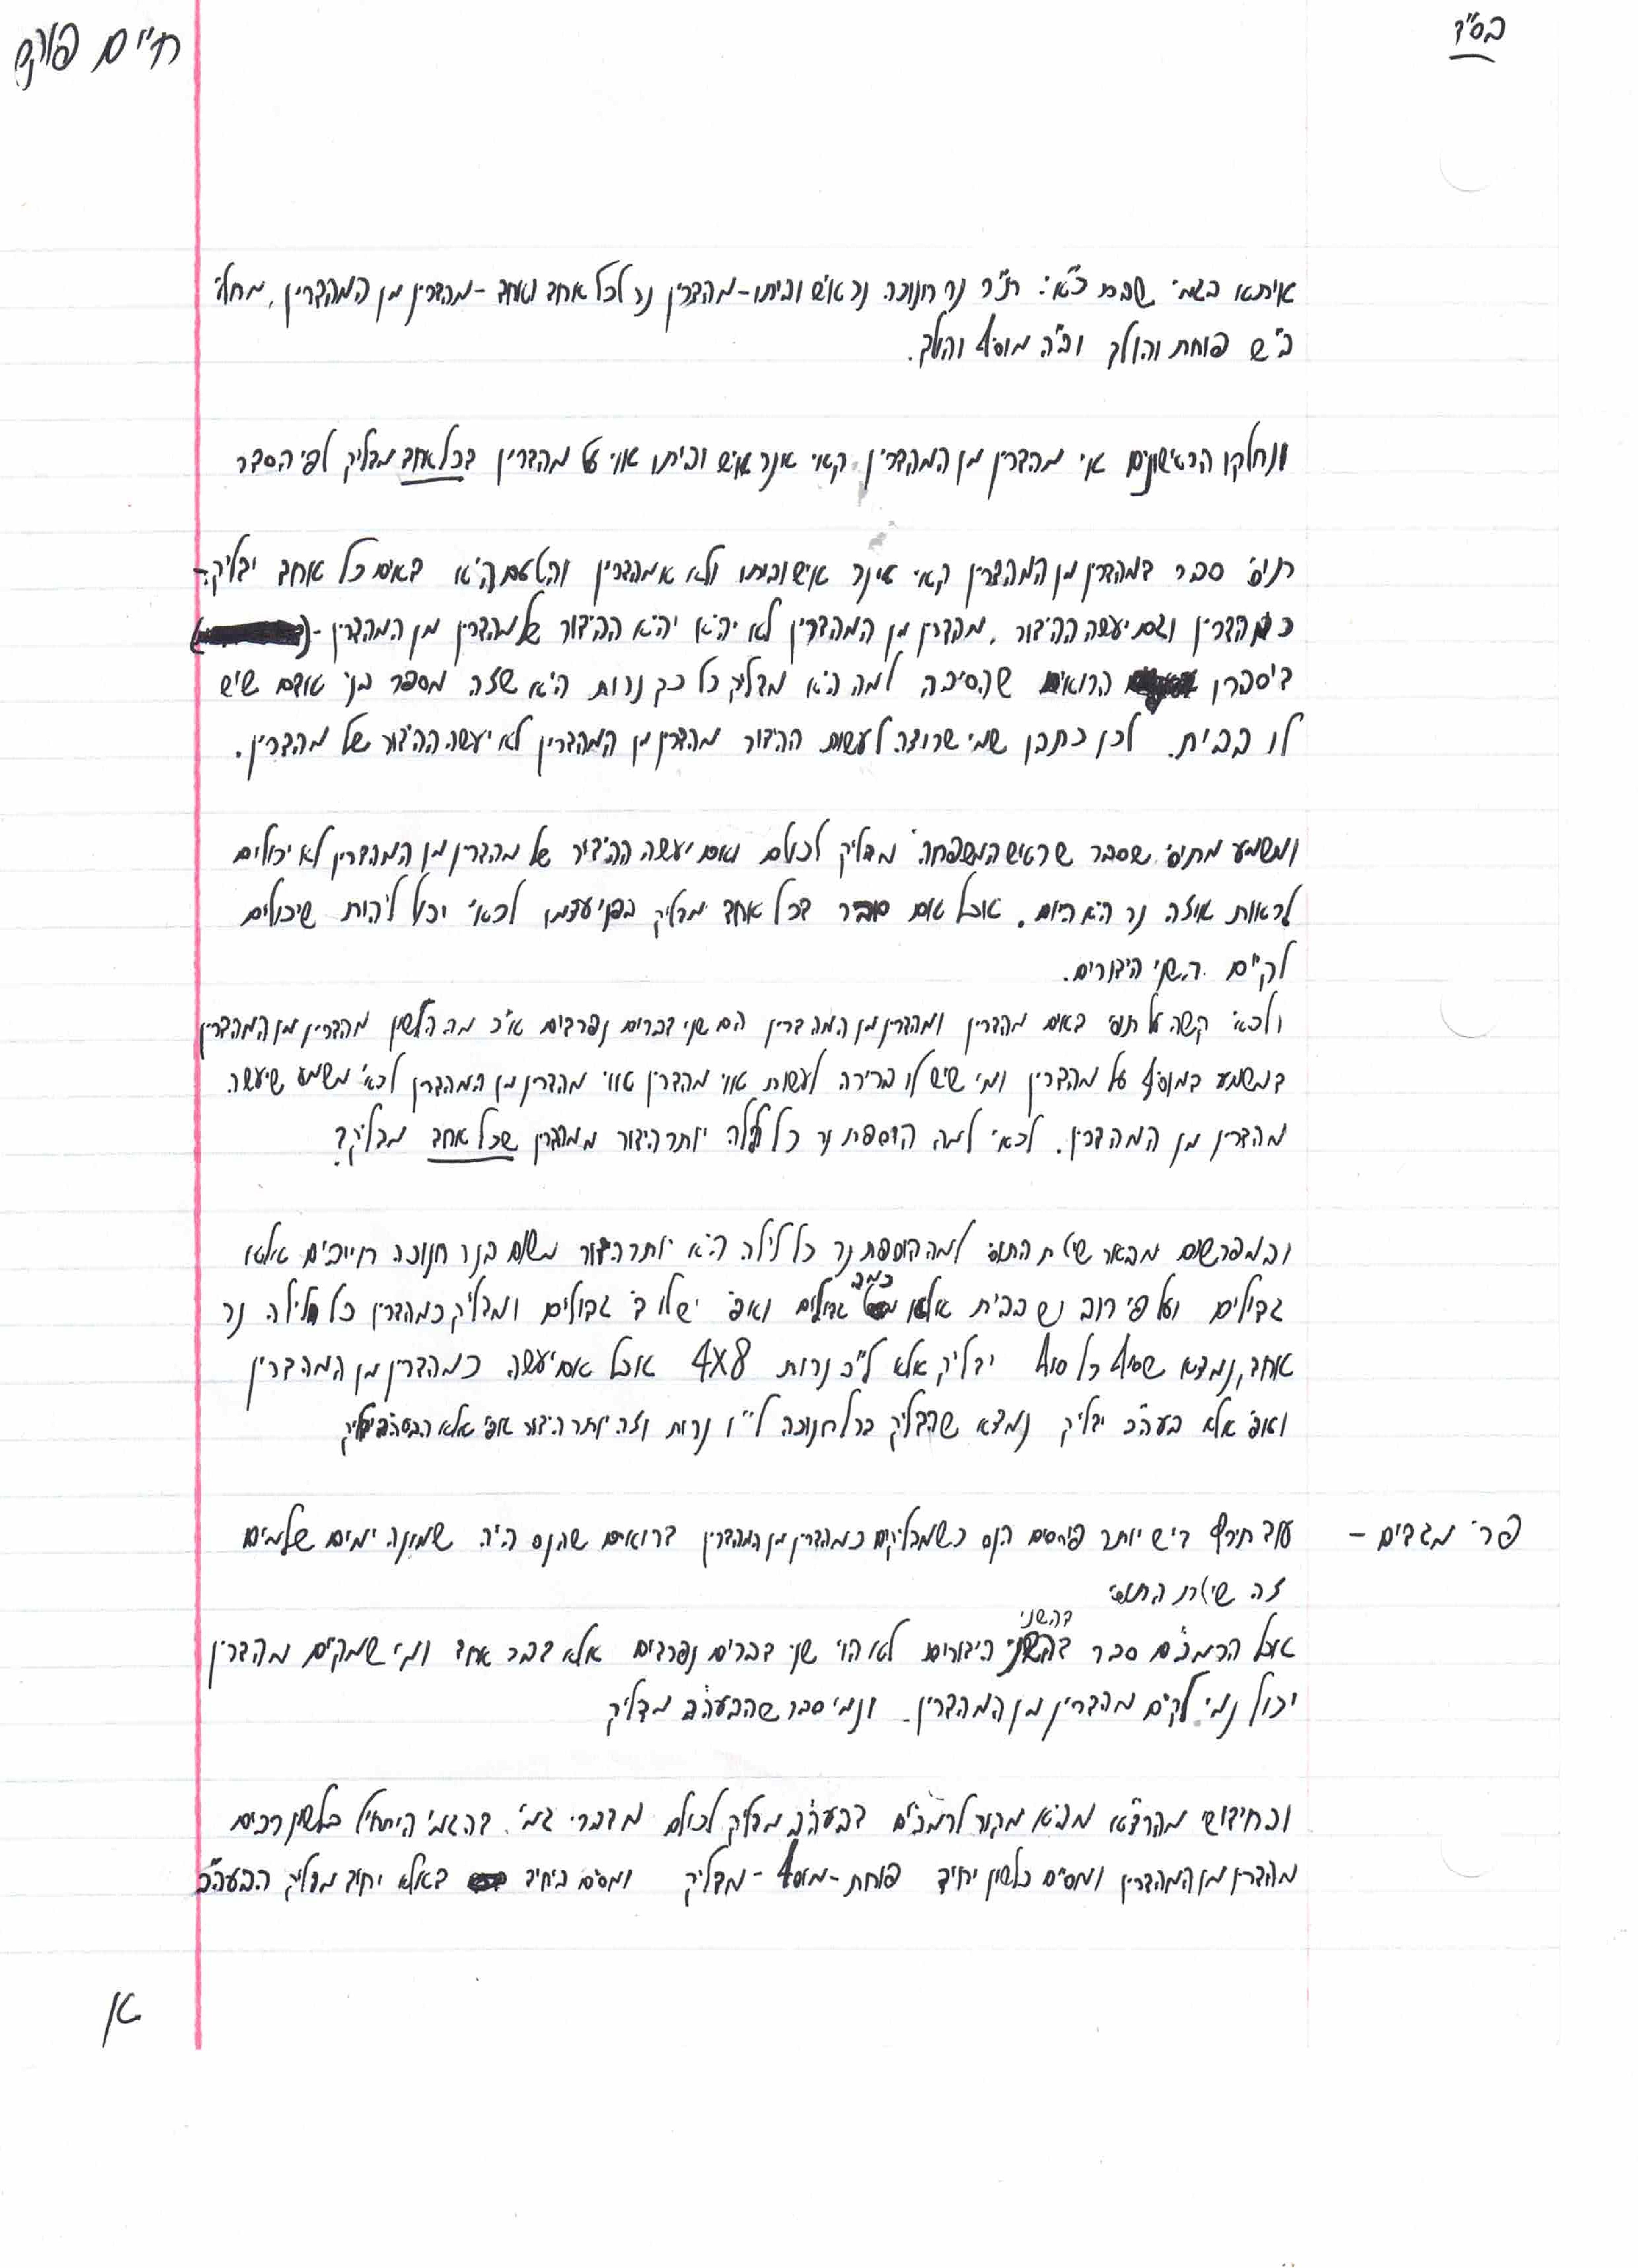 בס"ד
חיים פורקס
איתא בגמ' שבת כ"א: ת"ר נר חנוכה נר איש וביתו - מהדרין נר לכל אחד ואחד - מהדרין מן המהדרין, מחל'
ב"ש פוחת והולך וב"ה מוסיף והולך.
ונחלקו הראשונים אי מהדרין מן המהדרין קאי אנר איש וביתו או על מהדרין דכל אחד מדליק לפי הסדר
תוס' סבר דמהדרין מן המהדרין קאי אינר איש וביתו ולא אמהדרין והטעם הוא דאם כל אחד ידליק
כמהדרין וגם יעשה ההידור, מהדרין מן המהדרין לא יהיא יהיא ההידור של מהדרין מן המהדרין -
דיסברו הרואים שהסיבה למה היא מדליק כל כך נרות היא שזה מספר בני אודם שיש
לו בבית. לכן כתבו שמי שרוצה לעשות ההידור מהדרין מן המהדרין לא יעשה ההידור של מהדרין.
ומשמע מתוס' שסבר שראש המשפחה מדליק לכולם ואם יעשה ההידור של מהדרין מן המהדרין לא יכולים
לראות איזה נר היא היום. אבל אם סובר דכל אחד מדליק בפני עצמו לכא' יכול להיות שיכולים
לקיים השני הידורים.
ולכא' קשה על תוס' דאם מהדרין ומהדרין מן המהדרין הם שני דברים נפרדים א"כ מה הלשון מהדרין מן המהדרין
דמשמע דמוסיף על מהדרין ומי שיש לו ברירה לעשות או מהדרין או מהדרין מן המהדרין לכא' משמע שיעשה
מהדרין מן המהדרין. לכא' למה הוספת נר כל לילה יותר הידור ממהדרין שכל אחד מדליק?
ובמפרשים מבאר שיטת התוס' למה הוספת נר כל לילה היא יותר הידור משום דנר חנוכה חייבים אלא
גדולים ועל פי רוב יש בבית אלא כמה גדולים ואפ' יש לו ב' גדולים ומדליק כמהדרין כל לילה נר
אחד, נמצא שסוף כל סוף ידליק אלא ל"ב נרות 4x8 אבל אם יעשה כמהדרין מן המהדרין
ואפ' אלא בעה"ב ידליק נמצא שהדליק כל חנוכה ל"ו נרות וזה יותר הידור אפ' אלא הבעה"ב ידליק
פר' מגדים - עוד תירץ דיש יותר פירסום הנס כשמדליקים כמהדרין מן המהדרין דרואים שהנס היה שמונה ימים שלמים
זה שיטת התוס'
דהשני
אבל הרמב"ם סבר דהשני הידורים לא הוי שני דברים נפרדים אלא דבר אחד ומי שמקיים מהדרין
יכול נמי לקיים מהדרין מן המהדרין. ונמי סבר שהבעה"ב מדליק
ובחידושי מהרצ"א מביא מקור לרמב"ם דבעה"ב מדליק לכולם מדברי גמ' דהגמ' היתחיל בלשון רבים
מהדרין מן המהדרין ומסיים בלשון יחיד פוחת - מוסיף - מדליק ומסיים ביחיד דאלא יחיד מדליק הבעה"ב
א